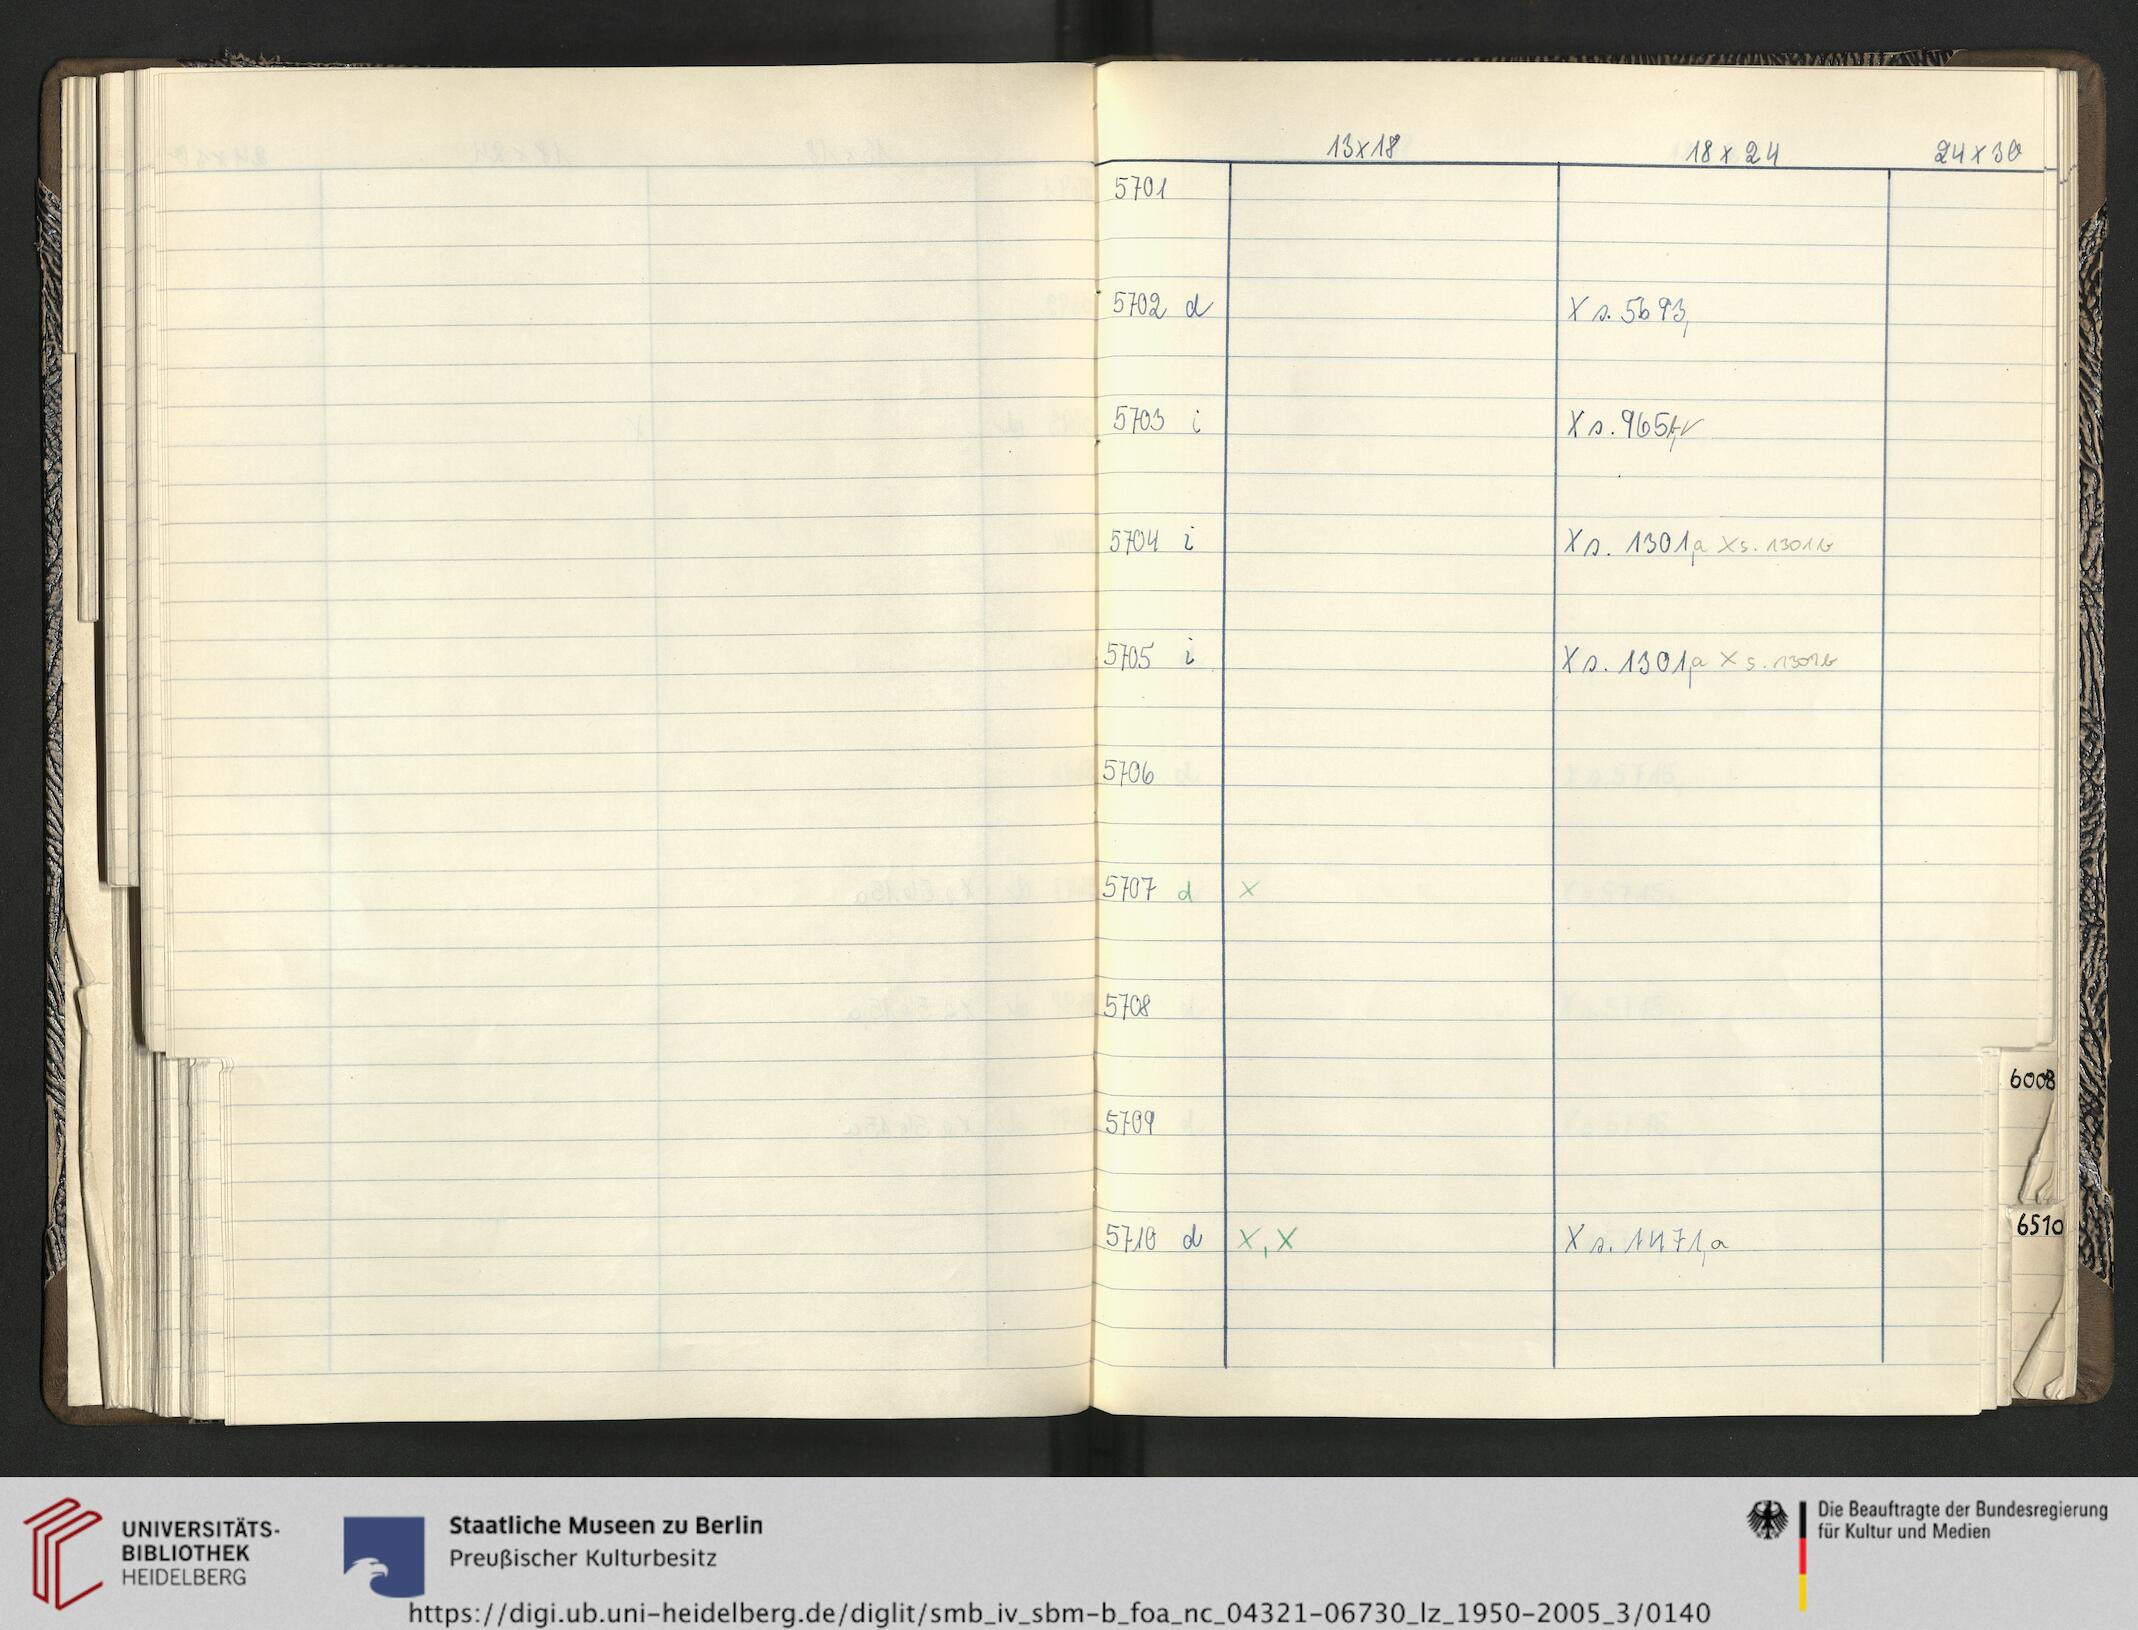 13x18 18x24 24x30
5701
5702 d X s. 5693,
5703 i X s. 965
5704 i X s. 1301,a X s. 1301b
5705 i X s. 1301,a X s. 1301b
5706
5707 d X
5708
5709
5710 d X, X X s. 1471,a
6008
6510
UNIVERSITÄTS-
BIBLIOTHEK
HEIDELBERG
Staatliche Museen zu Berlin
Preußischer Kulturbesitz
Die Beauftragte der Bundesregierung
für Kultur und Medien
https://digi.ub.uni-heidelberg.de/diglit/smb_iv_sbm-b_foa_nc_04321-06730_lz_1950-2005_3/0140